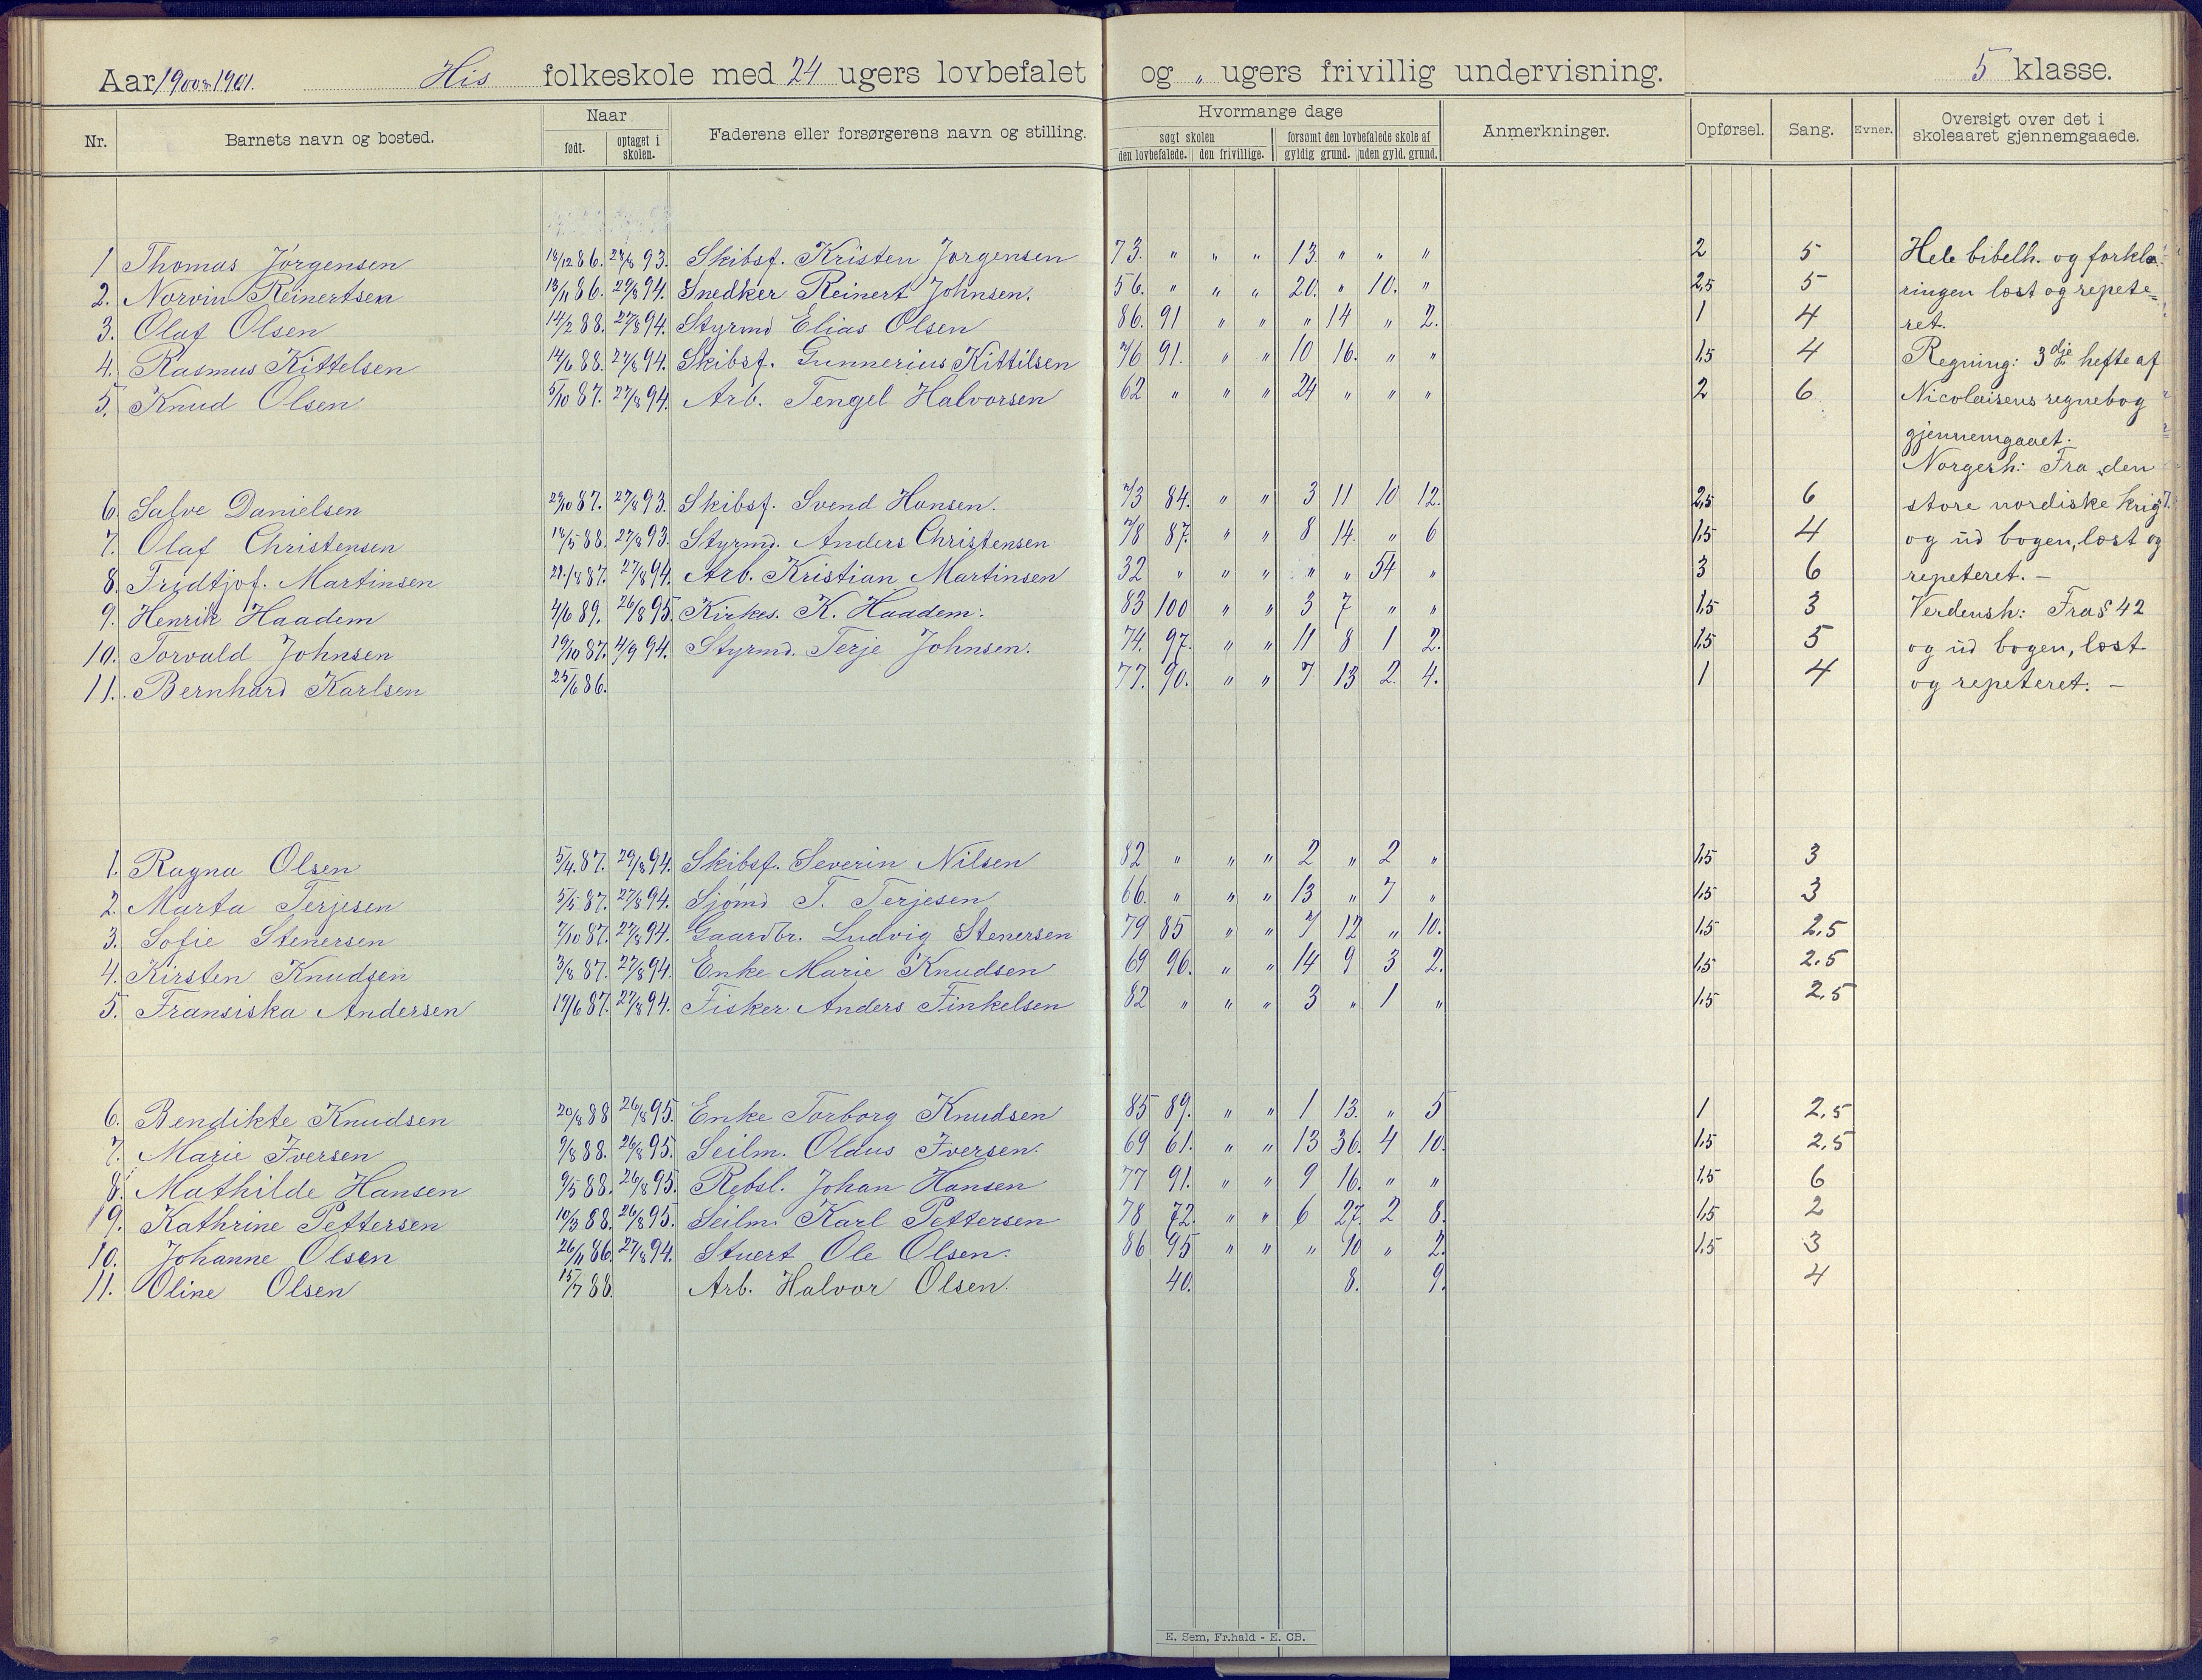 Aar 1900 & 1901. His folkeskole med 24 ugers lovbefalet og „ ugers frivillig undervisning. 5 klasse.
Nr. Barnets navn og bosted. Naar Faderens eller forsørgerens navn og stilling. Hvormange dage Anmerkninger. Opførsel. Sang. Evner. Oversigt over det i skoleaaret gjennemgaaede.
født. optaget i skolen. søgt skolen forsømt den lovbefalede skole af
den lovbefalede. den frivillige. gyldig grund. uden gyld. grund.
1 Thomas Jørgensen 18/12 86. 28/8 93. Skibsf. Kristen Jørgensen 73. „ „ „ 13. „ „ „ 2 5 Hele bibelh. og forkla-
2. Norvin Reinertsen 13/11 86. 29/8 94. Snedker Reinert Johnsen. 56. „ „ „ 20. „ 10. „ 2,5 5 ringen læst og repete=
3. Olaf Olsen 14/2 88. 27/8 94. Styrmd Elias Olsen 86. 91 „ „ „ 14 „ 2. 1 4 ret.
4. Rasmus Kittelsen 14/6 88. 27/8 94. Skibsf. Gunnerius Kittilsen 76 91. „ „ 10 16. „ „ 1,5 4 Regning: 3dje hefte af
5. Knud Olsen 5/10 87. 27/8 94. Arb. Tengel Halvorsen 62 „ „ „ 24 „ „ „ 2 6 Nicolaisens regnebog
gjennemgaaet.
Norgesh: Fra den
6. Salve Danielsen 29/10 87. 27/8 93. Skibsf. Svend Hansen. 73 84. „ „ 3 11 10 12. 2,5 6 store nordiske krig
7. Olaf Christensen 18/5 88. 27/8 93. Styrmd. Anders Christensen 78 87. „ „ 8 14. „ 6 1,5 4 og ud bogen, læst og
8. Fridtjof. Martinsen 87. 27/8 94. Arb. Kristian Martinsen 32 „ „ „ „ „ 54 „ 3 6 repeteret. –
9. Henrik Haadem 4/6 89. 26/8 95. Kirkes. K. Haadem. 83 100 „ „ 3 7 „ „ 1,5 3 Verdensh: Fra § 42
10. Torvald Johnsen 19/10 87. 4/9 94. Styrmd. Terje Johnsen. 74. 97. „ „ 11 8 1 2. 1,5 5 og ud bogen, læst
11. Bernhard Karlsen 25/6 86. 77. 90. „ „ 7 13 2. 4. 1 4 og repeteret. –
1. Ragna Olsen 5/4 87. 29/8 94. Skibsf. Severin Nilsen 82 „ „ „ 2 „ 2 „ 1,5 3
2. Marta Terjesen 5/5 87. 27/8 94. Sjømd T. Terjesen 66. „ „ „ 13 „ 7 „ 1,5 3
3. Sofie Stenersen 7/10 87. 27/8 94. Gaardbr. Ludvig Stenersen 79 85 „ „ 7 12 „ 10. 1,5 2,5
4. Kirsten Knudsen 3/8 87. 27/8 94. Enke Marie Knudsen 69 96. „ „ 14 9 3 2. 1,5 2,5
5. Fransiska Andersen 17/6 87. 27/8 94. Fisker Anders Finkelsen 82 „ „ „ 3 „ 1 „ 1,5 2,5
6. Bendikte Knudsen 20/8 88 26/8 95. Enke Torborg Knudsen 85 89. „ „ 1 13. „ 5 1 2,5
7. Marie Iversen 9/8 88. 26/8 95. Seilm. Olaus Iversen. 69 61. „ „ 13 36. 4 10. 1,5 2,5
8. Mathilde Hansen 9/5 88. 26/8 95. Rebsl. Johan Hansen 77 91. „ „ 9 16. „ „ 1,5 6
9. Kathrine Pettersen 10/3 88. 26/8 95. Seilm. Karl Pettersen 78 72. „ „ 6 27. 2 8. 1,5 2
10. Johanne Olsen 26/11 86. 27/8 94. Stuert Ole Olsen. 86 95 „ „ „ 10 „ 2. 1,5 3
11. Oline Olsen 15/7 88. Arb. Halvor Olsen. 40. 8. 9. 4
E. Sem, Fr.hald - E. CB.